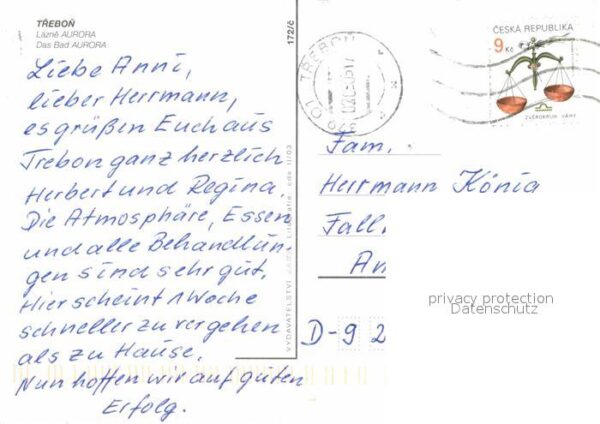 TŘEBOŇ
Lázně AURORA
Das Bad AURORA
172/č
Liebe Anni,
lieber Herrmann,
es grüßen Euch aus
Trebon ganz herzlich
Herbert und Regina.
Die Atmosphäre, Essen
und alle Behandlun-
gen sind sehr gut.
Hier scheint 1 Woche
schneller zu vergehen
als zu Hause.
Nun hoffen wir auf guten
Erfolg.
VYDAVATELSTVÍ
TŘEBOŇ
ČESKÁ REPUBLIKA
9 Kč
ZVĚROKRUH VÁHY
Fam.
Herrmann Könia
Fall
An
D-92
privacy protection
Datenschutz